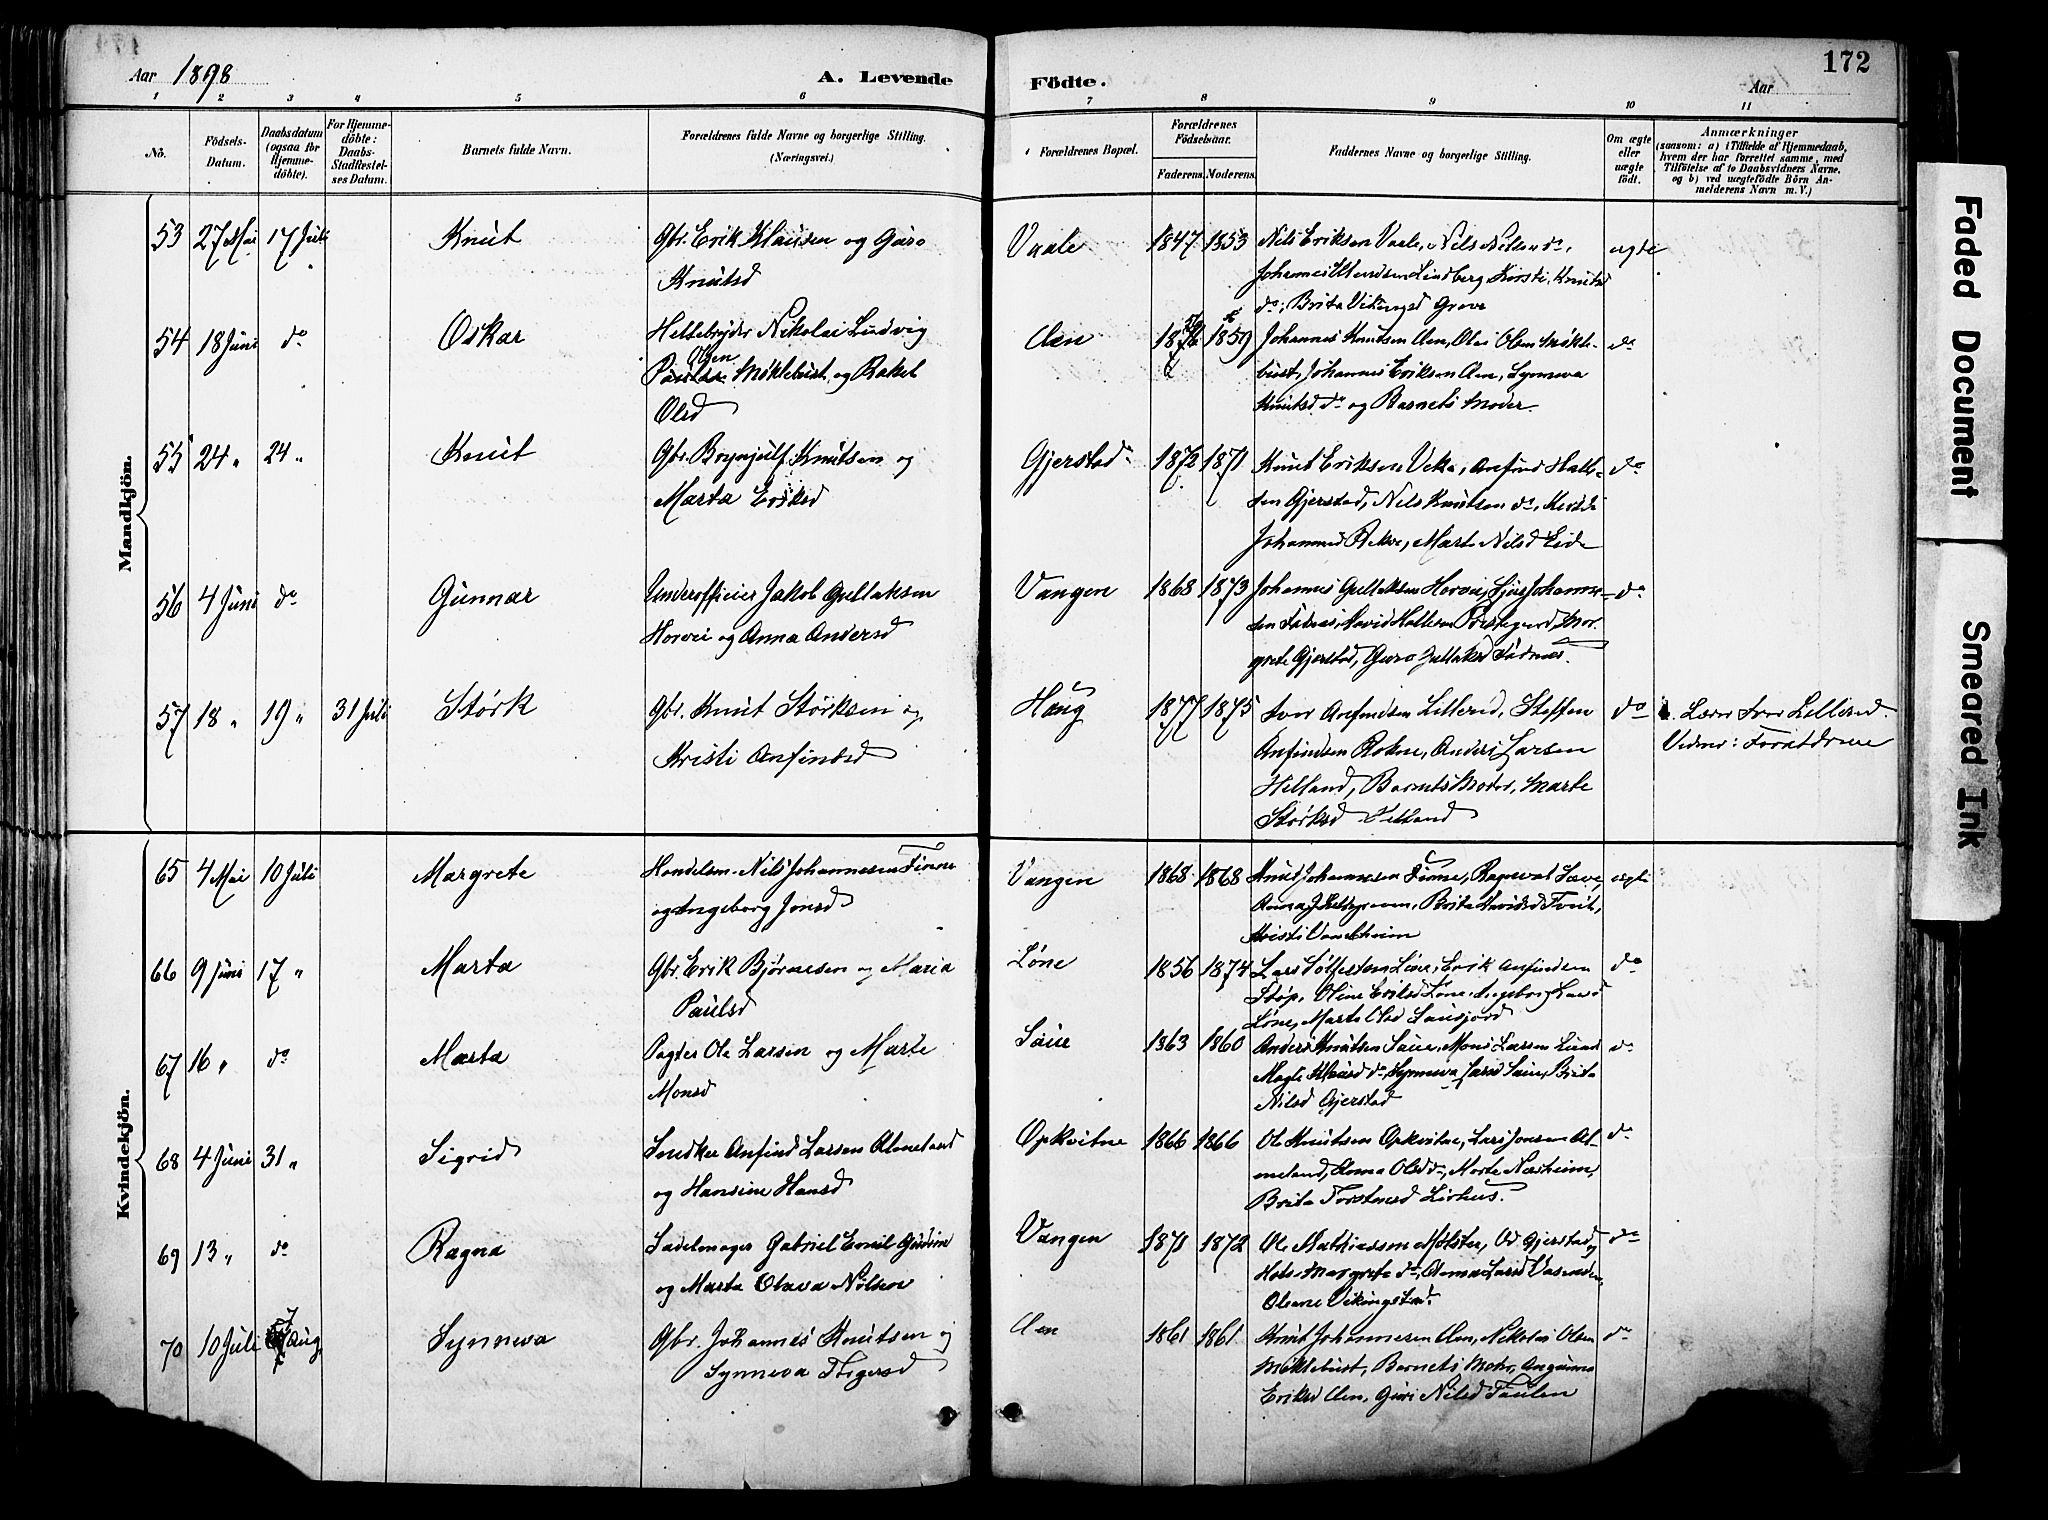 Aar 1898
A. Levende
Födte.
172
Aar
1 2 3 4 5 6 7 8 9 10 11
Nô.
Födsels-
Datum.
Daabsdatum
(ogsaa for
Hjemme-
döbte).
For Hjemme-
döbte:
Daabs-
Stadfæstel-
ses Datum.
Barnets fulde Navn.
Forældrenes fulde Navne og borgerlige Stilling.
(Næringsvei.)
Forældrenes Bopæl.
Forældrenes
Födselsaar.
Faderens. Moderens.
Faddernes Navne og borgerlige Stilling.
Om ægte
eller
uægte
födt.
Anmærkninger
(saasom: a) i Tilfælde af Hjemmedaab,
hvem der har forrettet samme, med
Tilföielse af to Daabsvidners Navne,
og b) ved uægtefödte Börn An-
melderens Navn m. V.)
Mandkjön.
53 27 Mai 17 Juli Knut Gbr. Erik Klausen og Guro
Knutsd
Vaale 1847 1853 Nils Eriksen Vaale, Nils Nilsen do,
Lindberg, Kirsti Knutsd
do, Brita Vikingsd Grove
ægte
54 18 Juni do Oskar Hellebryder Nikolai Ludvig
Olsen
Miklebust og Rakel
Olsd
Aen 1859 Johannes Knutsen Aen, Olai Olsen Mikle-
bust, Johannes Eriksen Aen, Synneva
Knutsd do og Barnets Moder.
do
55 24 " 24 " Knut Gbr. Brynjulf Knutsen og
Marta Eriksd
Gjerstad 1872 1871 Knut Eriksen Veka, Anfind
Gjerstad, Nils Knutsen do,
Rekve, Marta Nilsd Eide
do
56 4 Juni do Gunnar Underofficier Jakob Gullaksen
Horvei og Anna Andersd
Vangen 1868 1873 Johannes Gullaksen Horvei, Sjur Johannes-
sen
grete Gjerstad, Guro Gullaksd
do
57 18 " 19 " 31 Juli Størk Gbr. Knut Størksen og
Kristi Anfindsd
Haug 1877 1875 Ivar Anfindsen Lillerud, Steffen
Anfindsen Rokne, Anders Larsen
Helland, Barnets Moder, Marta
Størksd Helland
do Lærer Ivar Lillerud.
Vidner: Forældrene
Kvindekjön.
65 4 Mai 10 Juli Margrete Handelsm. Nils Johannesen Finne
og Ingeborg Jonsd
Vangen 1868 1868 Knut Johannesen Finne, Ragnvat Sæve,
Brita Davidsd Tveit,
Kristi Vonheim
ægte
66 9 Juni 17 " Marta Gbr. Erik Bjørnesen og Maria
Paulsd
Løne 1856 1874 Lars Sølfestsen Løne, Erik Anfindsen
Støp, Oline Eriksd Løne, Ingeborg Larsd
Løne, Marta Olsd
do
67 16 " do Marta Pagter Ole Larsen og Marte
Monsd
Saue 1863 1860 Anders Knutsen Saue, Mons Larsen Lund
do, Synneva Larsd Saue, Brita
Nilsd Gjerstad
do
68 4 Juni 31 " Sigrid Snedker Anfind Larsen Almeland
og Hansine Hansd
Opkvitne 1866 1866 Ole Knutsen Opkvitne, Lars Jonsen Al-
meland, Anna Olsd do, Marta Næsheim,
Brita Torstensd Lirhus.
do
69 13 " do Ragna Sadelmager Gabriel Emil Gudim
og Marta Olava Nilsen
Vangen 1871 1872 Ole Mathiassen Mølster, Od Gjerstad,
Margrete do, Anna Larsd
Vikingstad.
do
70 10 Juli 7 Aug Synneva Gbr. Johannes Knutsen og
Synneva Torgersd
Aen 1861 1861 Knut Johannesen Aen, Nikolai Olsen
Miklebust, Barnets Moder, Anguna
Eriksd Aen, Guri Nilsd Taulen
do
Faded Document
Smeared Ink